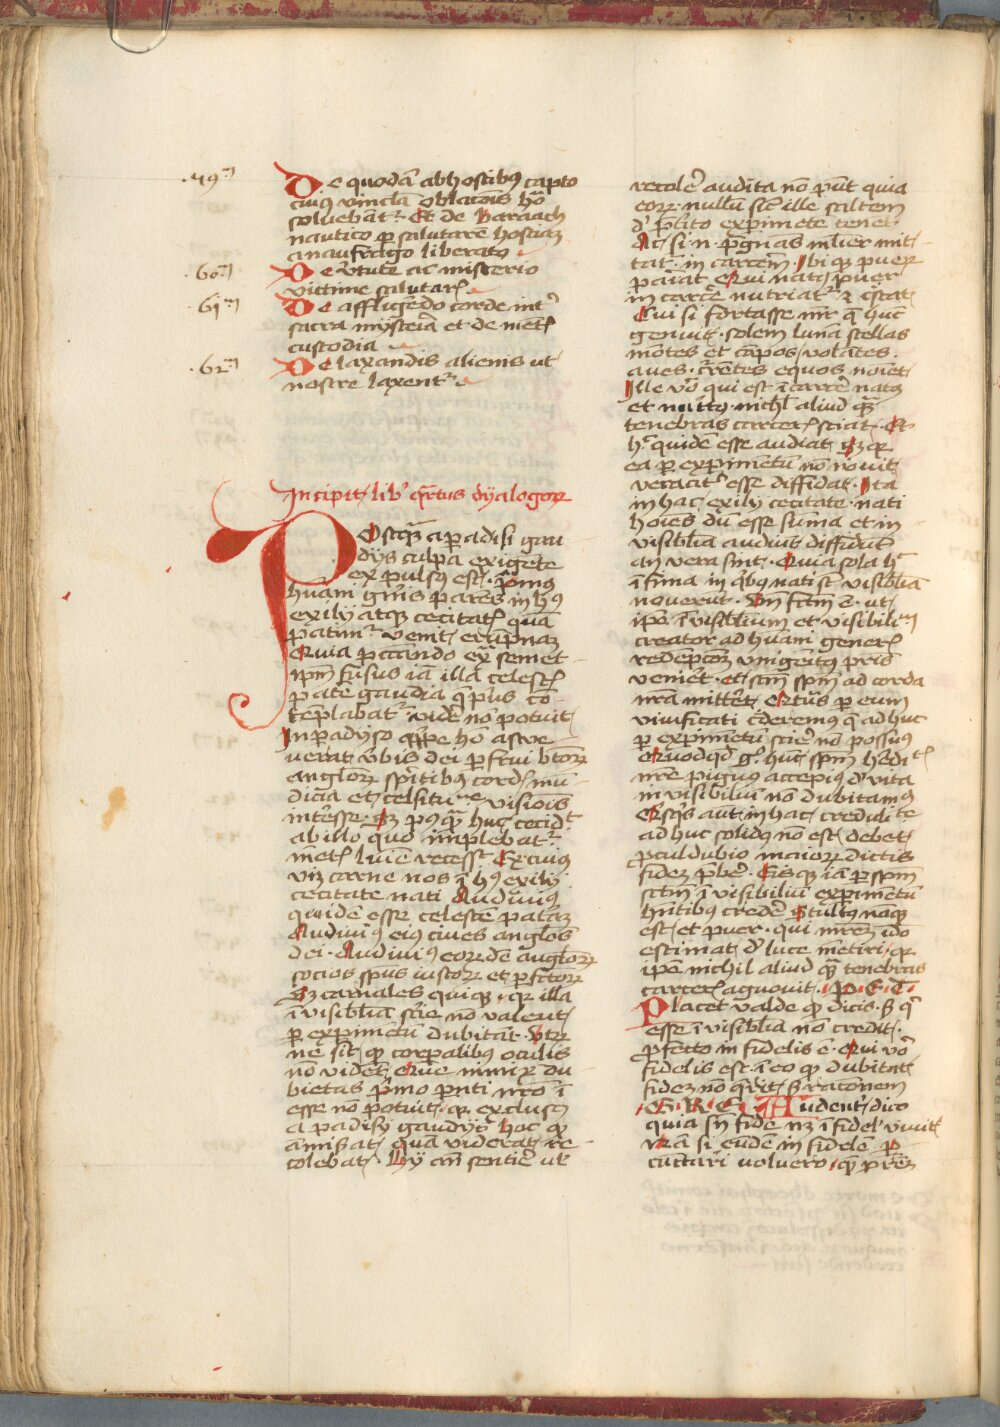 .49m
De quodā ab hostibus capto
cuius vincla oblacōis hora
soluebāt᷑ Et de Baraach
nautico per salutarē hostiam
a naufragio liberato
.60m
De v̓tute ac misterio
victime salutaris
.61m
De affligendo corde int̓
sacra mysteria et de mētis
custodia
.62m
De laxandis alienis ut
nostre laxent᷑
Incipit liber quartus dyalogorum
Postquam a paradisi gau
dijs culpa exigēte
expulsus est primus
humani gn̄is parens in huius
exilij atque cecitatis quā
patimur venit erūpnam
Quia peccando extra semet
ip̄m fusus iā illa celestis
patrie gaudia que prius cō
templabat᷑ videre nō potuit
In paradyso quippe homo assue
uerat v̓bis dei perfrui beatorum
anglorum spiritibus cordis mū
dicia et celsitudine visiōis
interesse. Sed postquam huc cecidit
ab illo quo implebat᷑
mētis lumine recessit Ex cuius
viz carne nos in huius exilij
cecitate nati Audiuimus
quidē esse celestē patriam
Audiuimus eius ciues anglos
dei. Audiuimus eorūdē anglorum
socios spūs iustorum et perfectorum
Sed carnales quique quia illa
inuisibilia scire nō valent
per experimētū dubitāt. Vtrum
ne sit quod corporalibus oculis
nō vident Que nimirum du
bietas primo parenti nostro
esse nō potuit quia exclusus
a paradisi gaudijs hoc quod
amiserat quia viderat re
colebat. Hij autem sentire uel
recolere audita nō possunt quia
eorum nullū sicut ille saltem
de preterito experimētū tenet
Ac si enim pregnās mulier mit
tat᷑ in carcerem. Ibique puerum
pariat Qui natus puer
in carcere nutriat᷑ et crescat
Cui si fortasse mater que hunc
genuit. solem lunā stellas
mōtes et cāpos, volātes
aues. currētes equos noīet
Ille vero qui est in carcere natus
et nutritus nichil aliud quam
tenebras carceris sciat. Et
hec quidē esse audiat sed quia
ea per experimētū nō nouit
veraciter esse diffidat. Ita
in hac exilij cecitate nati
hoīes dū esse sūma et in
visibilia audiunt diffidunt
an vera sint. Quia sola hec
infima in quibus nati sunt visibilia
nouerunt. Vnde factum est ut
ipse inuisibilium et visibilium
creator ad humani generis
redempcōem vnigenitus patris
veniret. et sanctum spiritum ad corda
nostra mitteret Quatinus per eum
viuificati crederemus que adhuc
per experimētū scire nō possumus
Quotquot ergo hunc spiritum hereditatis
nostre pignus accepimus de vita
inuisibilium nō dubitamus
Quisquis autem in hac credulitate
adhuc solidus nō est, debet
proculdubio maiorum dictis
fidem prebere. Eisque iam per spiritum
sanctum inuisibilium experimētū
habentibus credere Stultus namque
est et puer. qui matrem ideo
estimat de luce mētiri, quia
ipse nichil aliud quam tenebras
carceris agnouit. P. E. T.
Placet valde quod dicis. sed qui
esse inuisibilia nō credit.
profecto infidelis est. Qui vero
fidelis est in eo quod dubitat
fidem nō querit sed racionem
.G.R.E. Audenter dico
quia sine fide neque infidelis viuit
Nam si eundē infidelē per
cunctari uoluero, quem patrem